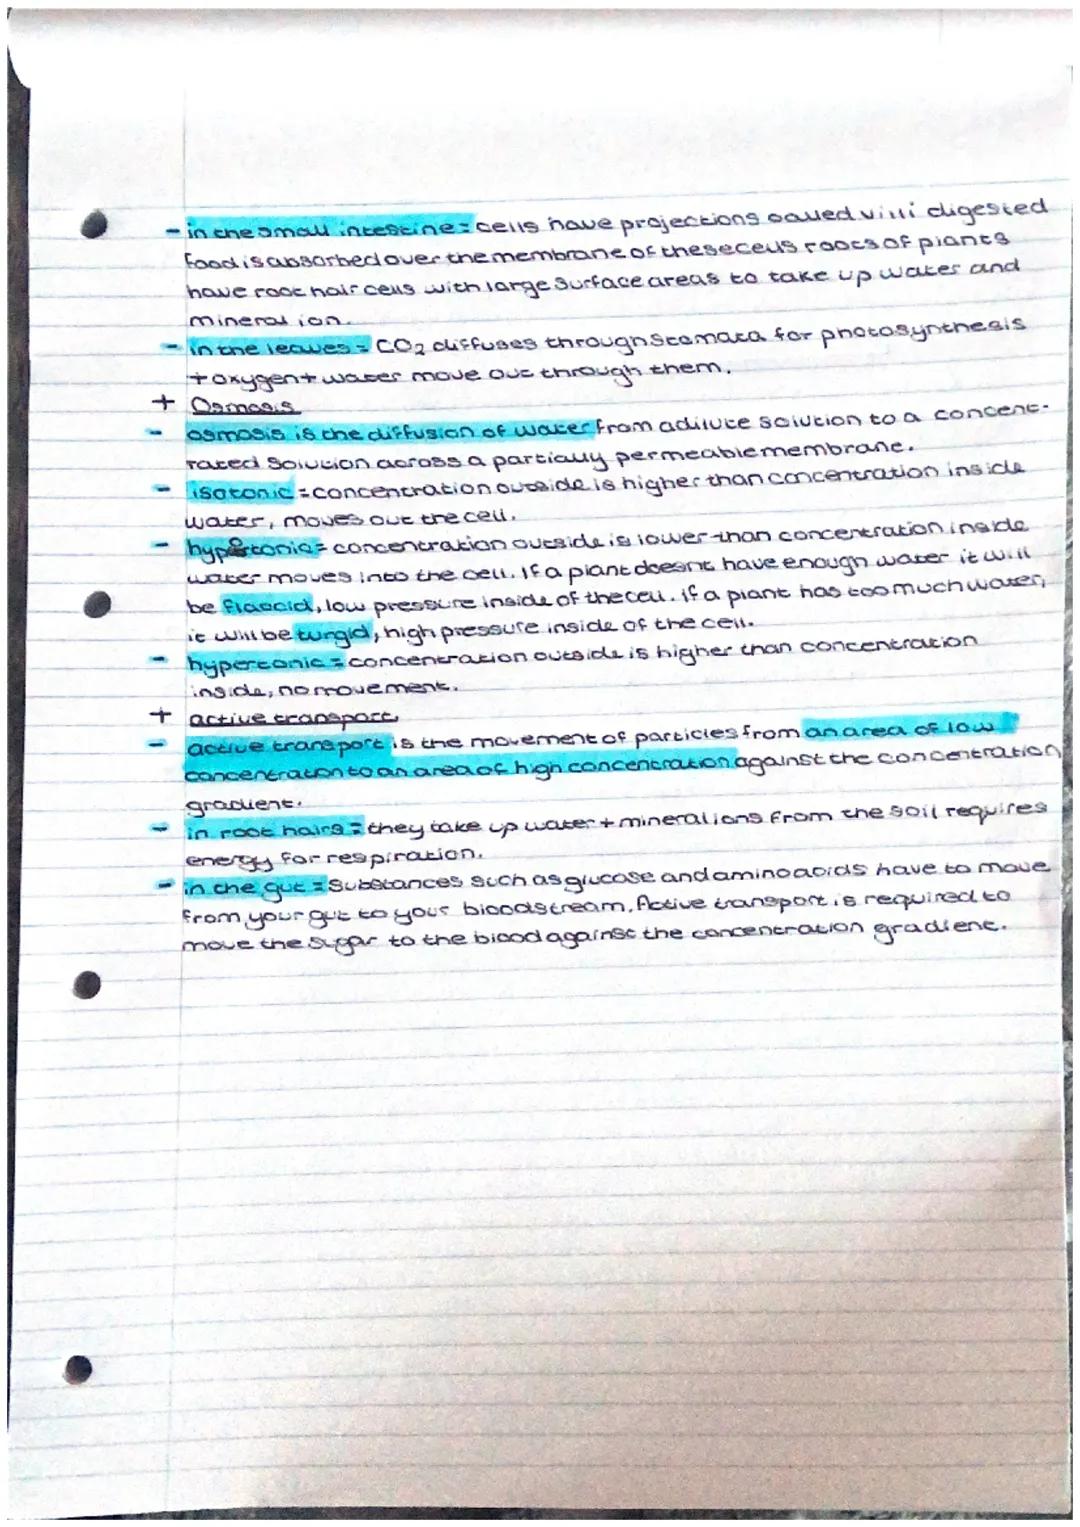 - in the small intestine = cells have projections called villi digested
food is absorbed over the membrane of these cells roots of plants
have root hair cells with large surface areas to take up water and
mineral ion.
- in the leaves = CO2 diffuses through stomata for photosynthesis
+ oxygen + water move out through them.
+ Osmosis
- osmosis is the diffusion of water from a dilute solution to a concent-
rated solution across a partially permeable membrane.
- isotonic = concentration outside is higher than concentration inside
water, moves out the cell.
- hypotonic = concentration outside is lower than concentration inside
water moves into the cell. If a plant doesnt have enough water it will
be flaccid, low pressure inside of the cell. if a plant has too much water,
it will be turgid, high pressure inside of the cell.
- hypertonic = concentration outside is higher than concentration
inside, no movement.
+ active transport
- active transport is the movement of particles from an area of low
concentration to an area of high concentration against the concentration
gradient.
- in root hairs = they take up water + mineral ions from the soil requires
energy for respiration.
- in the gut = Substances such as glucose and amino acids have to move
from your gut to your bloodstream. Active transport is required to
move the sugar to the blood against the concentration gradient.